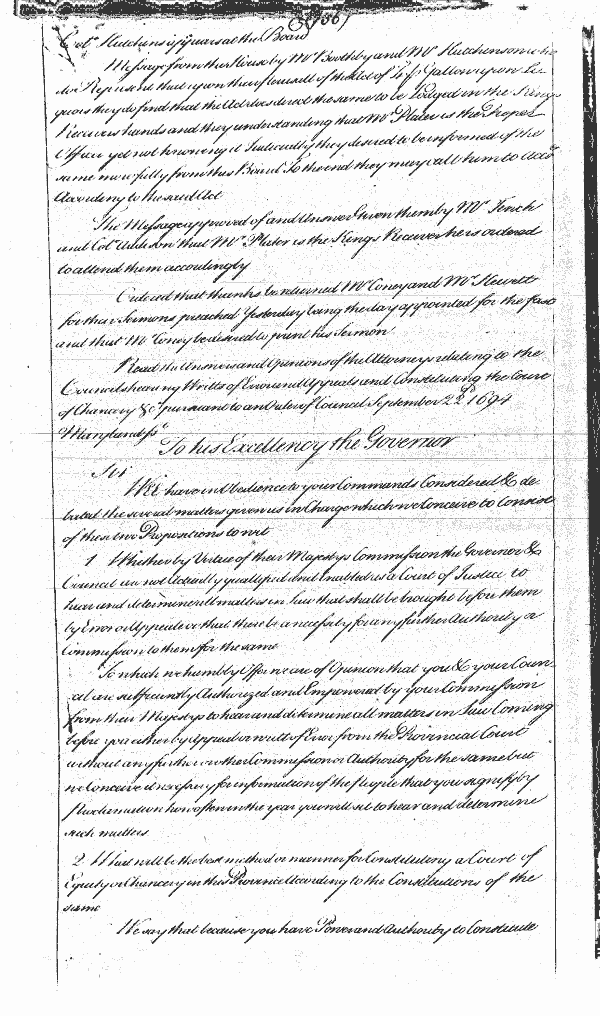 Coll Hutchens appears at the Board
Message from the House by Mr Boothby and Mr Hutchenson who
doe Represent that upon their perusall of the Act of per Gallon upon Li-
quors they do find that the Act orders the same to be Lodged in the Kings
Receivers hands and they understanding that Mr Plater is the Proper
Officer yet not knowing it Judicially they desired to be informed of the
same more fully from this Board To the end they may call them to Acco
According to the said Act
The Message approved of and Answer Given them by Mr Tench
and Col Addison that Mr Plater is the Kings Receiver he is ordered
to attend them accordingly
Ordered that thanks be returned Mr Coney and Mr Hewett
for their Sermons preached Yesterday being the day appointed for the fast
and that Mr Coney be desired to print his Sermon
Read the Answers and Opinions of the Attorneys relating to the
Councils hearing Writts of Error and Appeals and Constituting the Court
of Chancery &c pursuant to an Order of Council September 22d 1694
Maryland ss
To his Excellency the Governor
Sir
Wee have in Obedience to your Commands Considered & de-
bated the several matters given us in Charge which we Conceive to Consist
of these two Propositions to wit
1 Whether by Virtue of their Majestys Commission the Governor &
Council are not Actually qualifyed and Enabled as a Court of Justice to
hear and determine all matters in Law that shall be brought before them
by Error or Appeale or that there be a necessity for any further Authority or
Commission to them for the same
To which we humbly Offer we are of Opinion that you & your Coun-
cil are sufficiently Authorized and Empowered by your Commission
from their Majestys to hear and determine all matters in Law Coming
before you either by Appeal or writt of Error from the Provincial Court
without any further or other Commission or Authority for the same but
we Conceive it necessary for information of the People that you signify by
Proclamation how often in the year you will sit to hear and determine
such matters
2 What will be the best method or manner for Constituting a Court of
Equity or Chancery in this Province According to the Constitutions of the
same
We say that because you have Power and Authority to Constitute